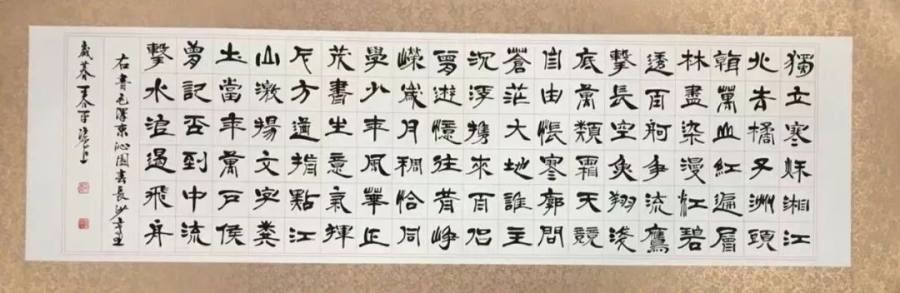 獨立寒秌湘江
北去橘子洲頭
看萬山紅遍層
林盡染漫江碧
透百舸爭流鷹
擊長空魚翔淺
底萬類霜天競
自由悵寥廓問
蒼茫大地誰主
沉浮攜來百侶
曾遊憶往昔崢
嶸歲月稠恰同
學少年風華正
茂書生意氣揮
斥方遒指點江
山激揚文字糞
土當年萬戶侯
曾記否到中流
擊水浪遏飛舟
右書毛澤東沁園春長沙
歲暮